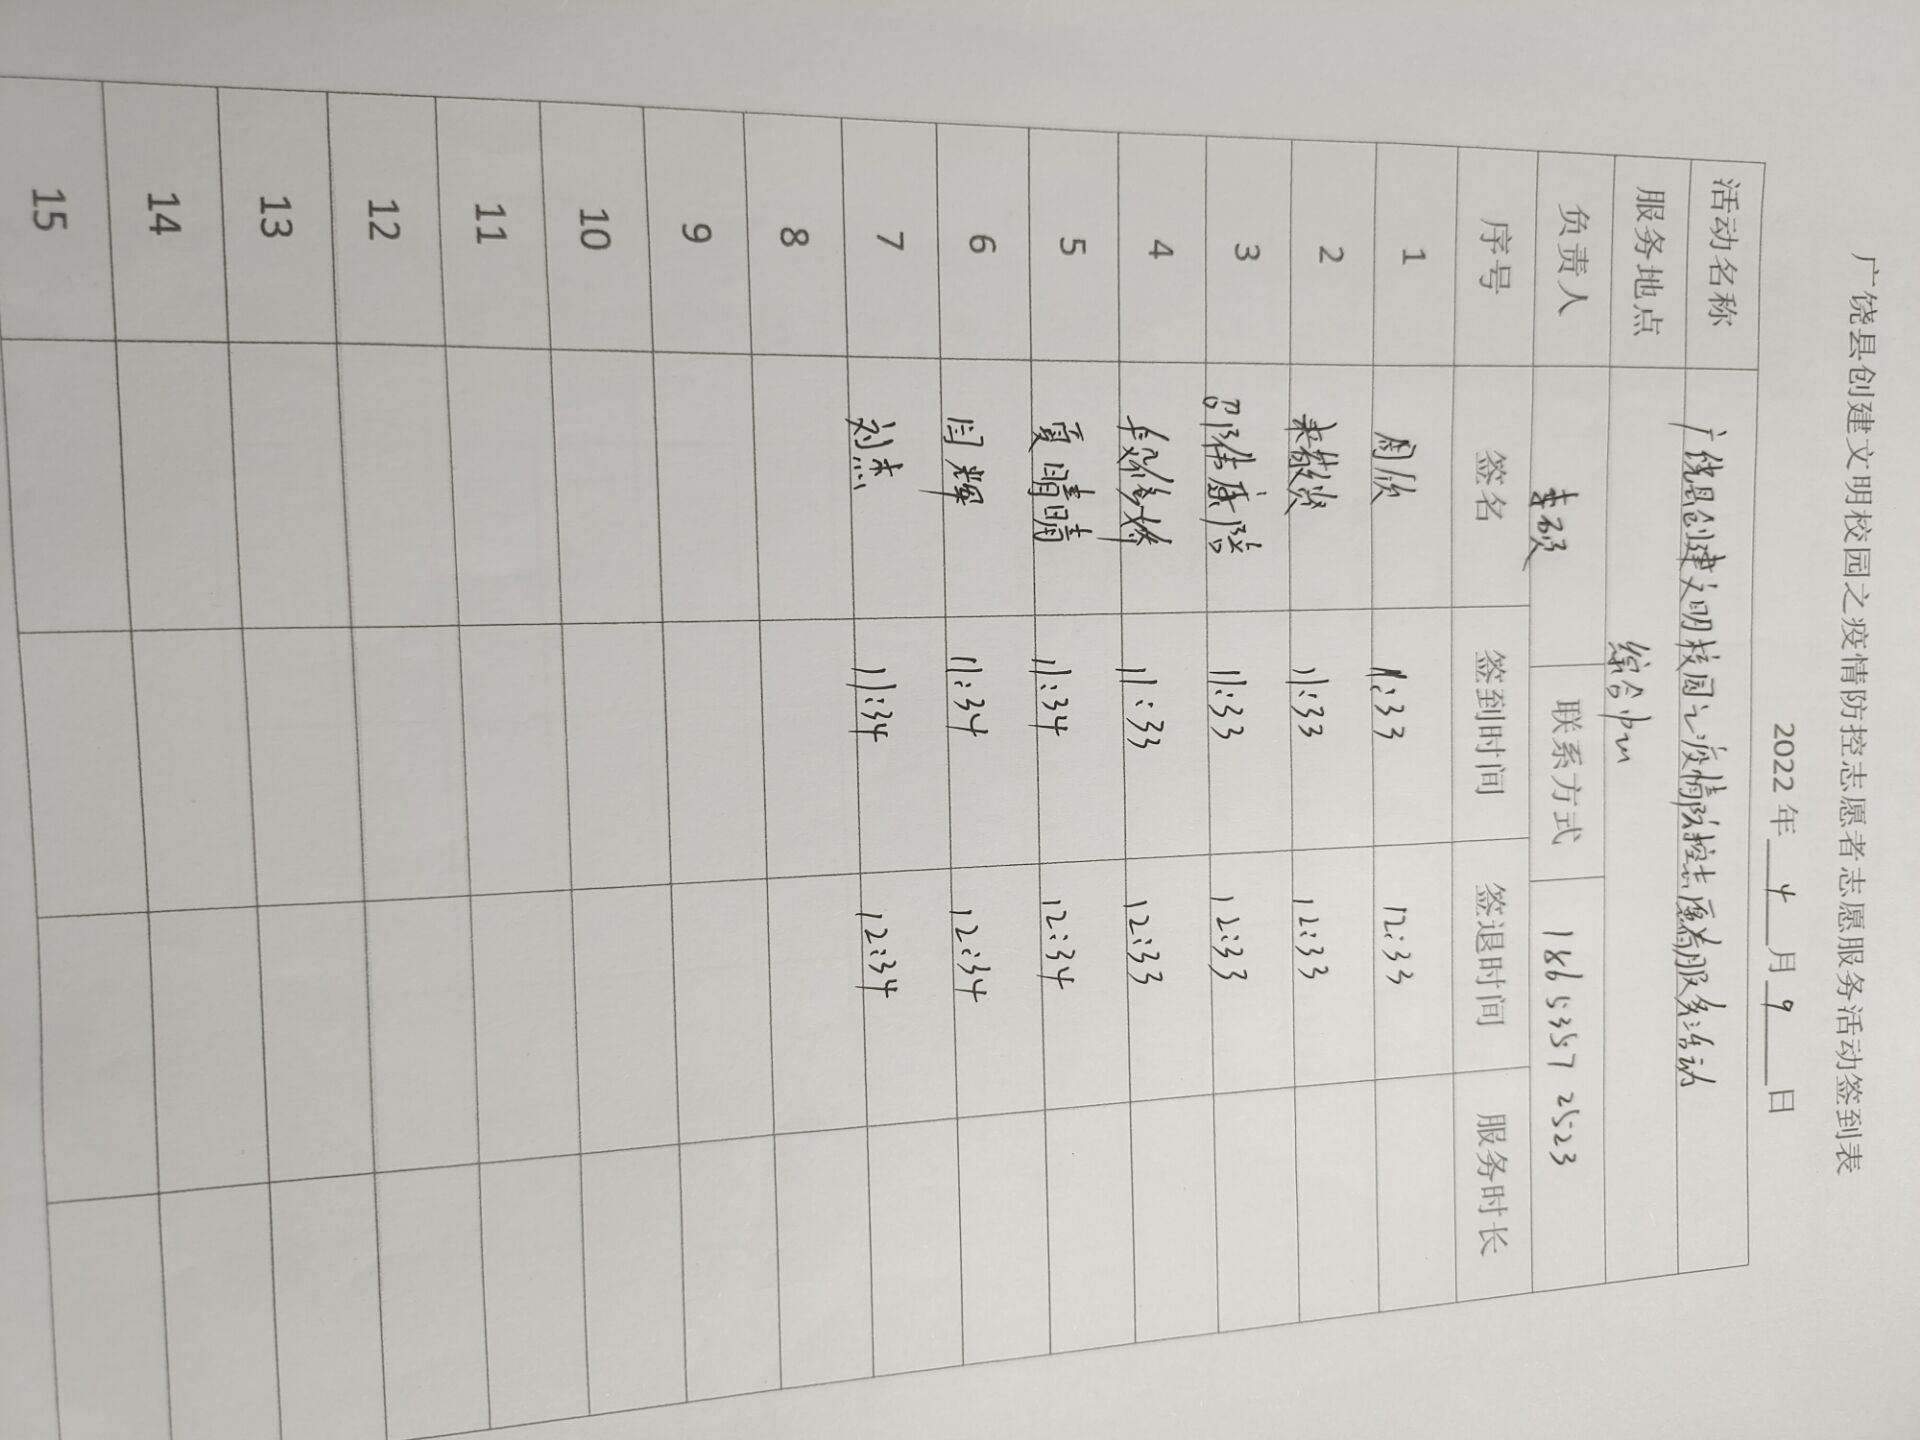 广饶县创建文明校园之疫情防控志愿者志愿服务活动签到表
2022 年 4 月 9 日
活动名称 广饶县创建文明校园之疫情防控志愿者服务活动
服务地点 综合中心
负责人 李硕 联系方式 18653572523
序号 签名 签到时间 签退时间 服务时长
1 周欣 11:33 12:33
2 11:33 12:33
3 11:33 12:33
4 11:33 12:33
5 夏晴晴 11:34 12:34
6 闫辉 11:34 12:34
7 刘杰 11:34 12:34
8
9
10
11
12
13
14
15